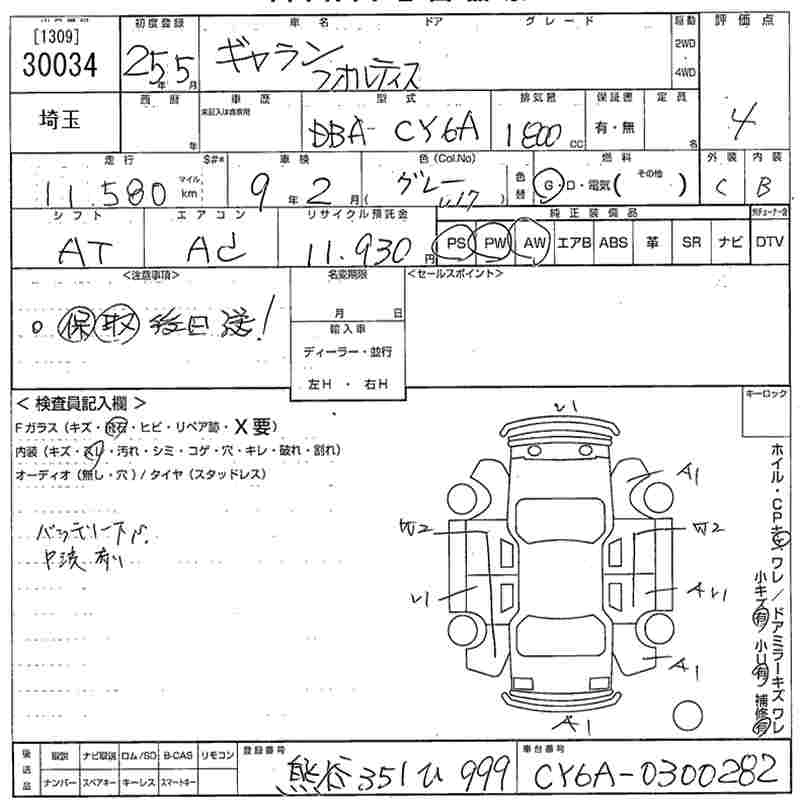 [1309]
30034
初度登録 車名 ドア グレード 駆動 評価点
25年5月 ギャラン フォルティス 2WD
4WD
4
埼玉 西暦 年 車歴 未記入は自家用 型式 DBA-CY6A 排気量 1800cc 保証書 有・無 定員 名
走行 $#* 車検 色(Col.No) 色替 燃料 その他 外装 内装
11.580 マイル km 9年2月 グレー G・D・電気( ) C B
シフト エアコン リサイクル預託金 純正装備品
AT AC 11.930円 PS PW AW エアB ABS 革 SR ナビ DTV
＜注意事項＞ 名変期限 ＜セールスポイント＞
月 日
○保取後日送!
輸入車
ディーラー・並行
左H・右H
＜検査員記入欄＞ キーロック
Fガラス(キズ・飛石・ヒビ・リペア跡・X要)
内装(キズ・スレ・汚れ・シミ・コゲ・穴・キレ・破れ・割れ)
オーディオ(無し・穴)/タイヤ(スタッドレス)
バッテリー下
U1
A1
W2 W2
U1 AU1
A1
A1
ホイル・CPキズ ワレ/ドアミラーキズ ワレ
小キズ有 小U有 補修有
後送品 取説 ナビ取説 ロム/SD B-CAS リモコン
ナンバー スペアキー キーレス スマートキー
登録番号 熊谷351ひ999
車台番号 CY6A-0300282